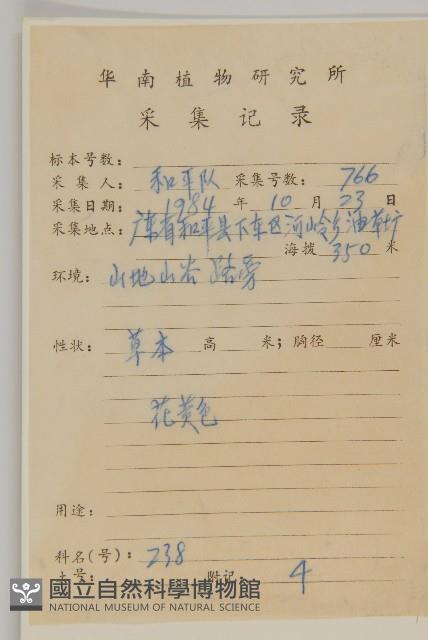 华南植物研究所
采集记录
标本号数：
采集人：和平队 采集号数：766
采集日期：1984 年 10 月 23 日
采集地点：广东省和平县下车区河岭乡油草圹
海拨 350 米
环境：山地山谷 路旁
性状：草本 高 米；胸径 厘米
花黄色
用途：
科名(号)：238
土号： 附记 4
國立自然科學博物館
NATIONAL MUSEUM OF NATURAL SCIENCE